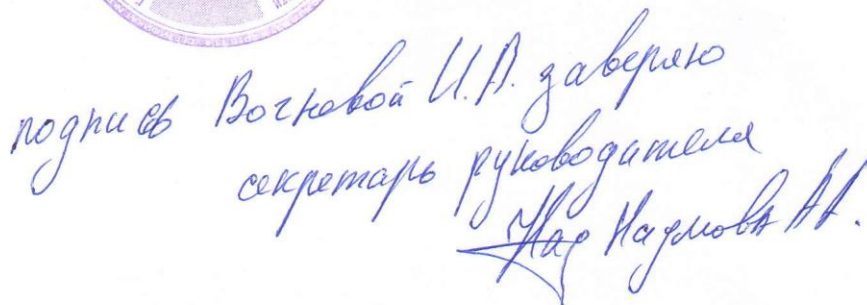 подпись Вогновой И.А. заверяю
секретарь руководителя
Над Надмова АА.